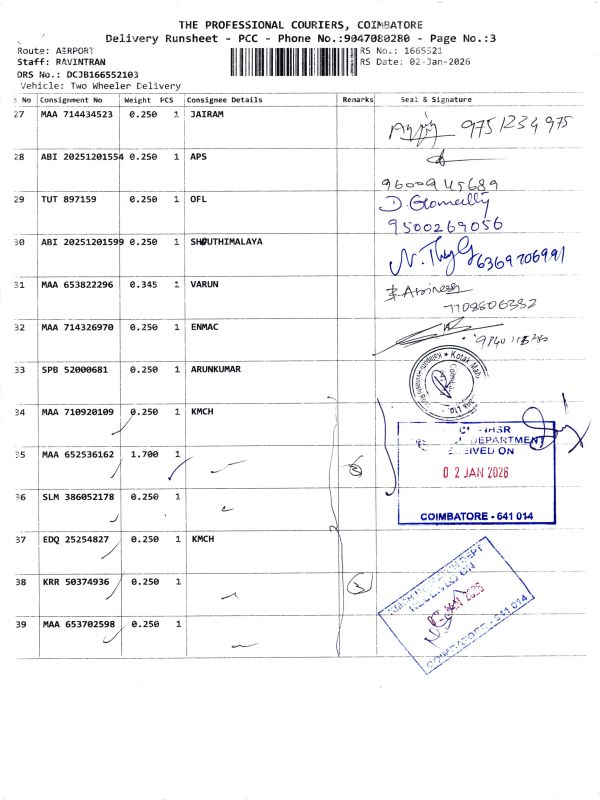 THE PROFESSIONAL COURIERS, COIMBATORE
Delivery Runsheet - PCC - Phone No.:9047080280 - Page No.:3
Route: AIRPORT
RS No.: 1665521
Staff: RAVINTRAN
RS Date: 02-Jan-2026
DRS No.: DCJB166552103
Vehicle: Two Wheeler Delivery
S No Consignment No Weight PCS Consignee Details Remarks Seal & Signature
27 MAA 714434523 0.250 1 JAIRAM
9751234975
28 ABI 20251201554 0.250 1 APS
29 TUT 897159 0.250 1 OFL
9500269056
30 ABI 20251201599 0.250 1 SHOUTHIMALAYA
6369706991
31 MAA 653822296 0.345 1 VARUN
7708606382
32 MAA 714326970 0.250 1 ENMAC
33 SPB 52000681 0.250 1 ARUNKUMAR
34 MAA 710920109 0.250 1 KMCH
35 MAA 652536162 1.700 1
DEPARTMENT
02 JAN 2026
36 SLM 386052178 0.250 1
COIMBATORE - 641 014
37 EDQ 25254827 0.250 1 KMCH
38 KRR 50374936 0.250 1
RECEIVED ON
39 MAA 653702598 0.250 1
COIMBATORE - 641 014